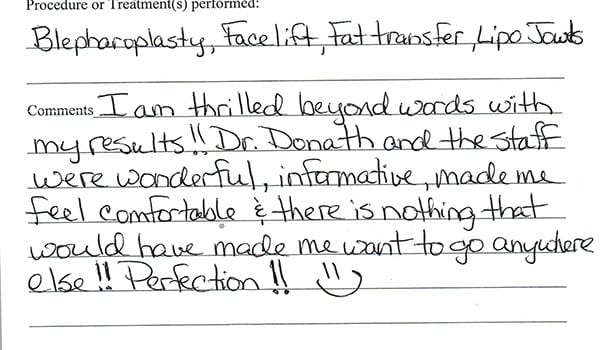 Procedure or Treatment(s) performed:
Blepharoplasty, Facelift, Fat transfer, Lipo Jowls
Comments I am thrilled beyond words with
my results!! Dr. Donath and the staff
were wonderful, informative, made me
feel comfortable & there is nothing that
would have made me want to go anywhere
else!! Perfection!!